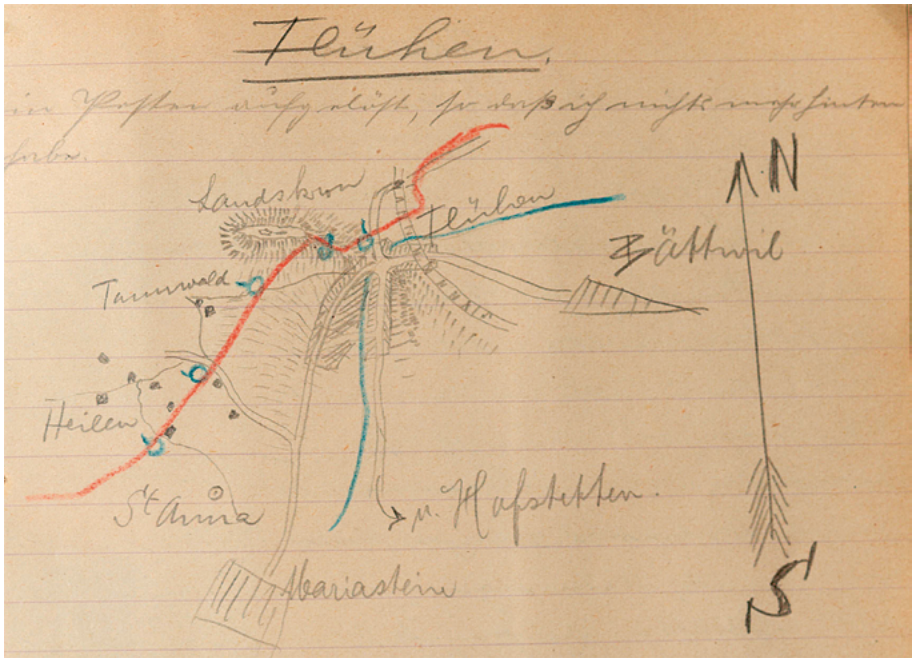 Flühen.
in Posten aufgelöst, so daß ich nichts mehr hinten
habe.
N
Landskron
Flühen
Bättwil
Tannwald
Heilen
St Anna
n. Hofstetten.
Mariastein
S